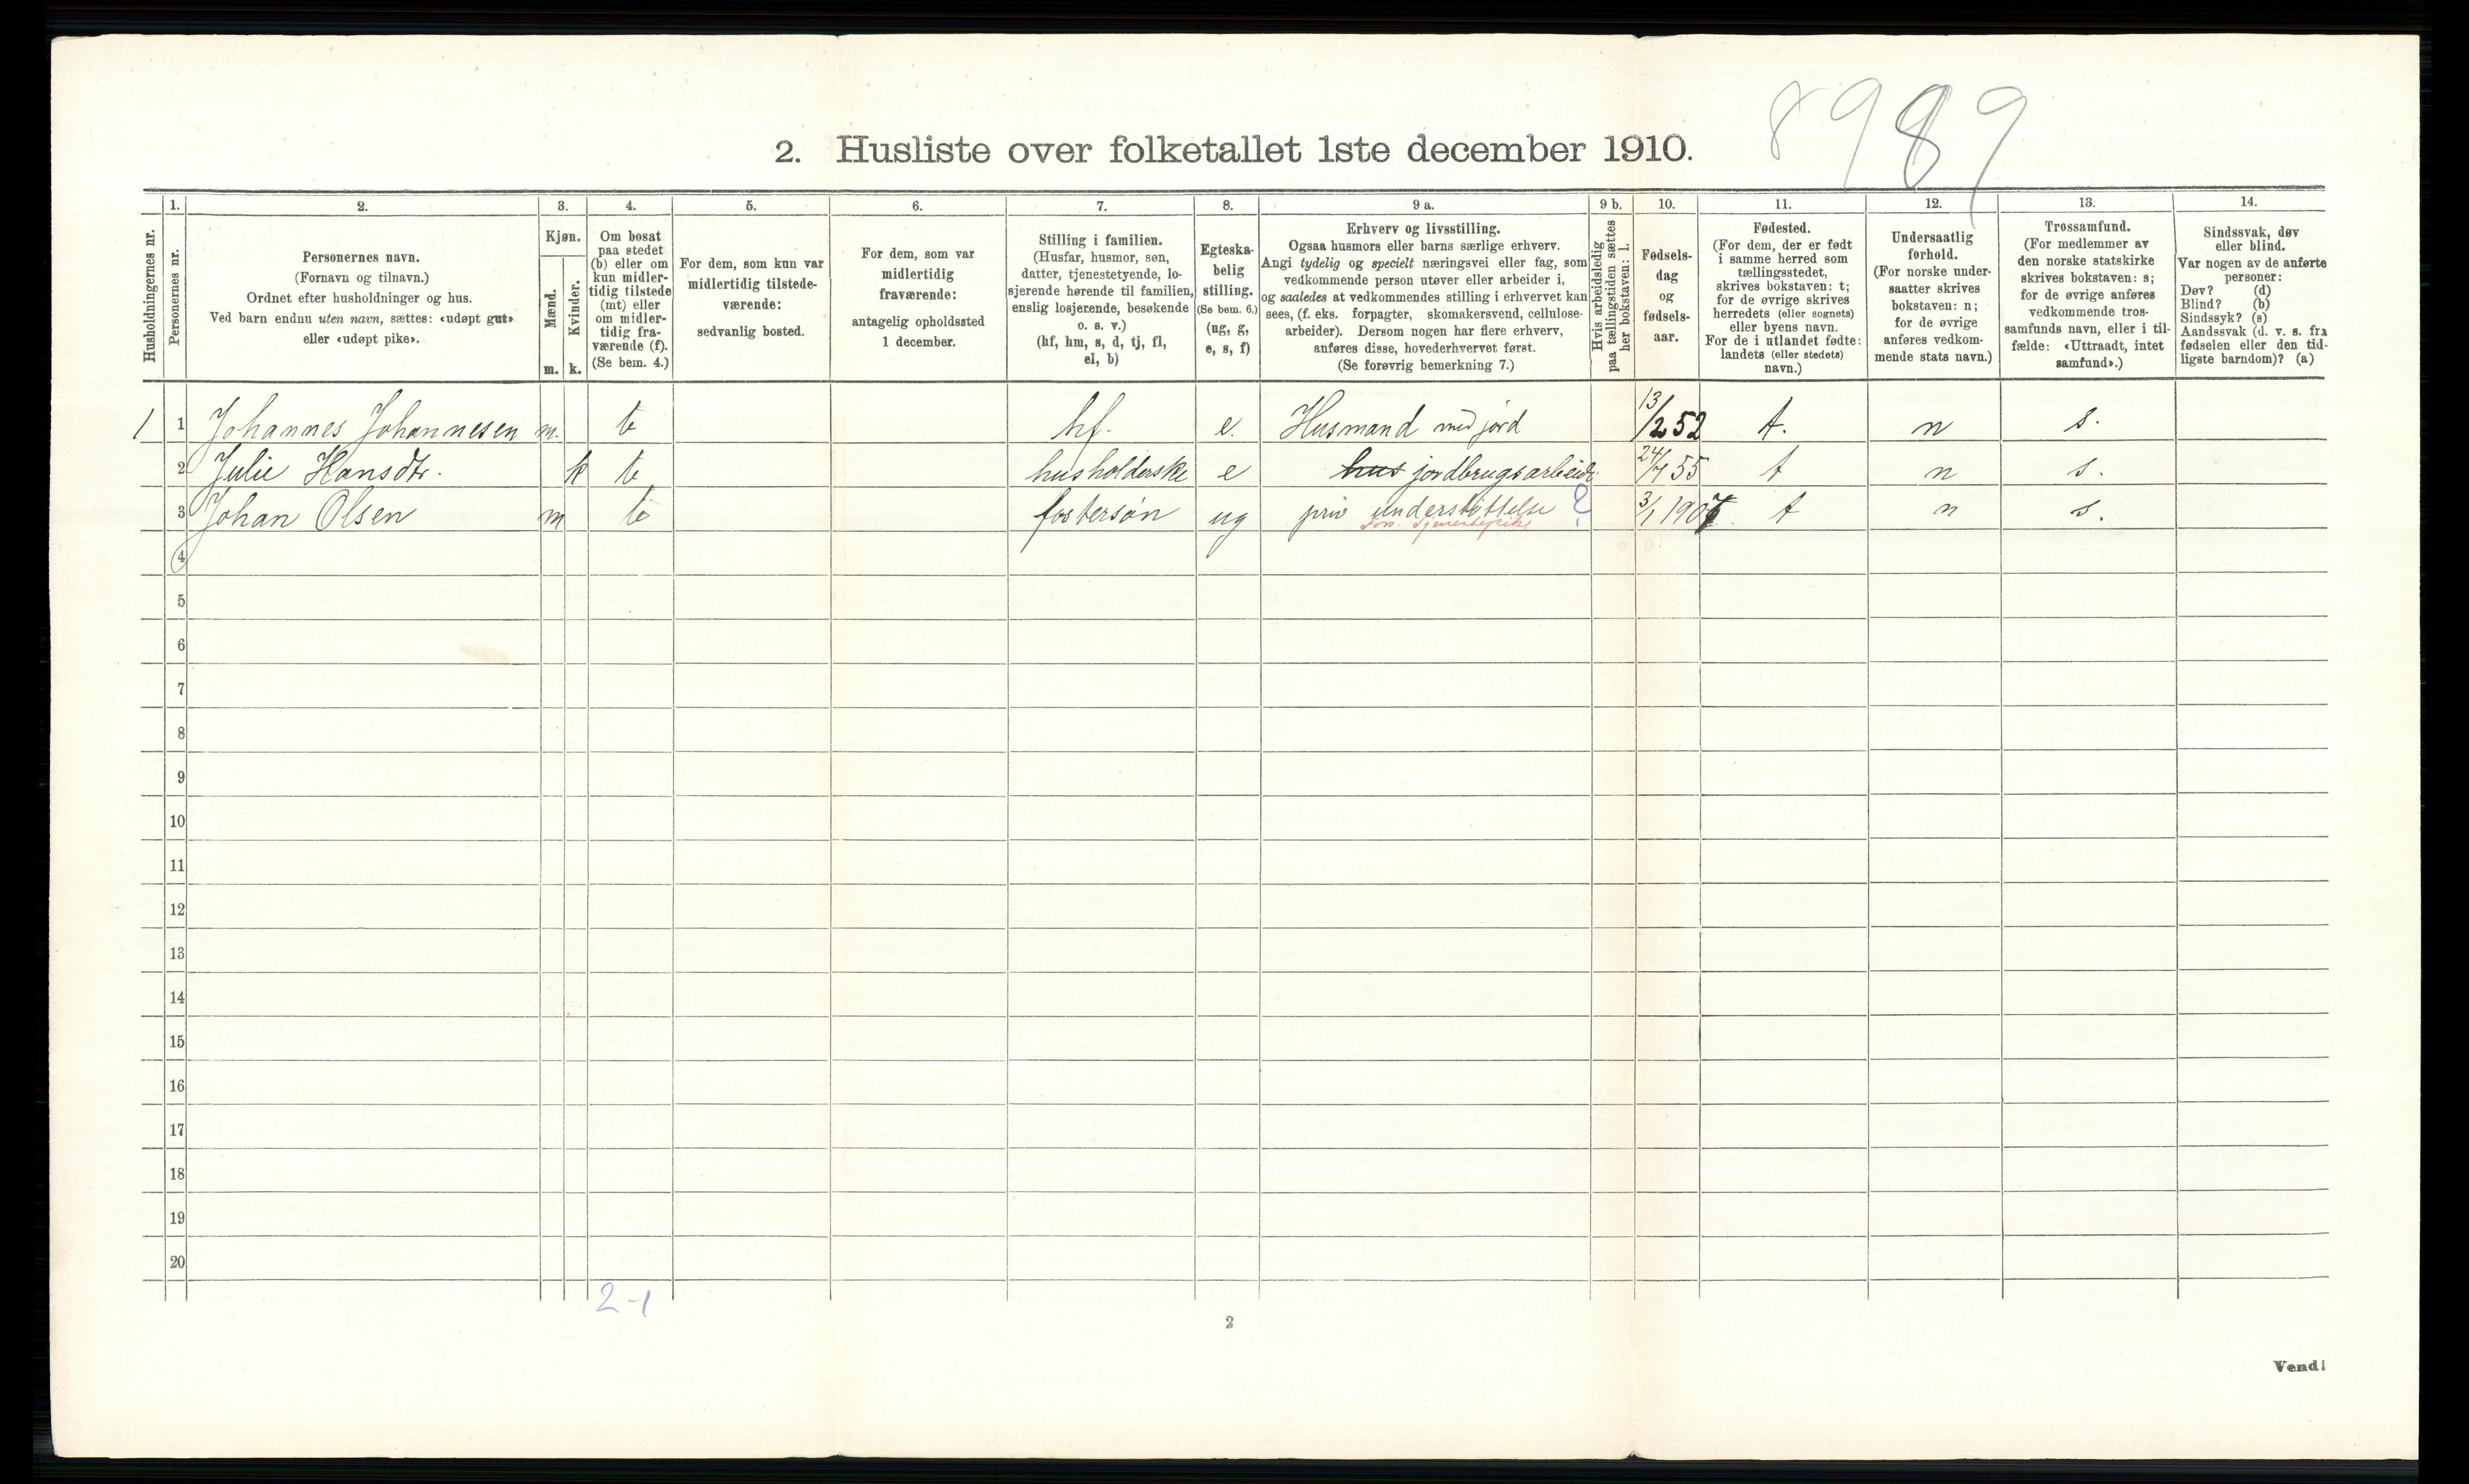 8989
2. Husliste over folketallet 1ste december 1910.
Husholdningernes nr.
1.
Personernes nr.
2.
Personernes navn.
(Fornavn og tilnavn.)
Ordnet efter husholdninger og hus.
Ved barn endnu uten navn, sættes: «udøpt gut»
eller «udøpt pike».
3.
Kjøn.
Mænd.
m.
Kvinder.
k.
4.
Om bosat
paa stedet
(b) eller om
kun midler-
tidig tilstede
(mt) eller
om midler-
tidig fra-
værende (f).
(Se bem. 4.)
5.
For dem, som kun var
midlertidig tilstede-
værende:
sedvanlig bosted.
6.
For dem, som var
midlertidig
fraværende:
antagelig opholdssted
1 december.
7.
Stilling i familien.
(Husfar, husmor, søn,
datter, tjenestetyende, lo-
sjerende hørende til familien,
enslig losjerende, besøkende
o. s. v.)
(hf, hm, s, d, tj, fl,
el, b)
8.
Egteska-
belig
stilling.
(Se bem. 6.)
(ug, g,
e, s, f)
9 a.
Erhverv og livsstilling.
Ogsaa husmors eller barns særlige erhverv.
Angi tydelig og specielt næringsvei eller fag, som
vedkommende person utøver eller arbeider i,
og saaledes at vedkommendes stilling i erhvervet kan
sees, (f. eks. forpagter, skomakersvend, cellulose-
arbeider). Dersom nogen har flere erhverv,
anføres disse, hovederhvervet først.
(Se forøvrig bemerkning 7.)
9 b.
Hvis arbeidsledig
paa tællingstiden sættes
her bokstaven: l.
10.
Fødsels-
dag
og
fødsels-
aar.
11.
Fødested.
(For dem, der er født
i samme herred som
tællingsstedet,
skrives bokstaven: t;
for de øvrige skrives
herredets (eller sognets)
eller byens navn.
For de i utlandet fødte:
landets (eller stedets)
navn.)
12.
Undersaatlig
forhold.
(For norske under-
saatter skrives
bokstaven: n;
for de øvrige
anføres vedkom-
mende stats navn.)
13.
Trossamfund.
(For medlemmer av
den norske statskirke
skrives bokstaven: s;
for de øvrige anføres
vedkommende tros-
samfunds navn, eller i til-
fælde: «Uttraadt, intet
samfund».)
14.
Sindssvak, døv
eller blind.
Var nogen av de anførte
personer:
Døv? (d)
Blind? (b)
Sindssyk? (s)
Aandssvak (d. v. s. fra
fødselen eller den tid-
ligste barndom)? (a)
1 1 Johannes Johannesen m. b hf. e. Husmand med jord 13/2 52 t. n s.
2 Julie Hansdtr. k b husholderske e hus jordbrugsarbeide 24/7 55 t n s.
3 Johan Olsen m b fostersøn ug priv understøttelse ? 3/1 1907 t n s.
For. tjenestepike
4
5
6
7
8
9
10
11
12
13
14
15
16
17
18
19
20
2-1
2
Vend!